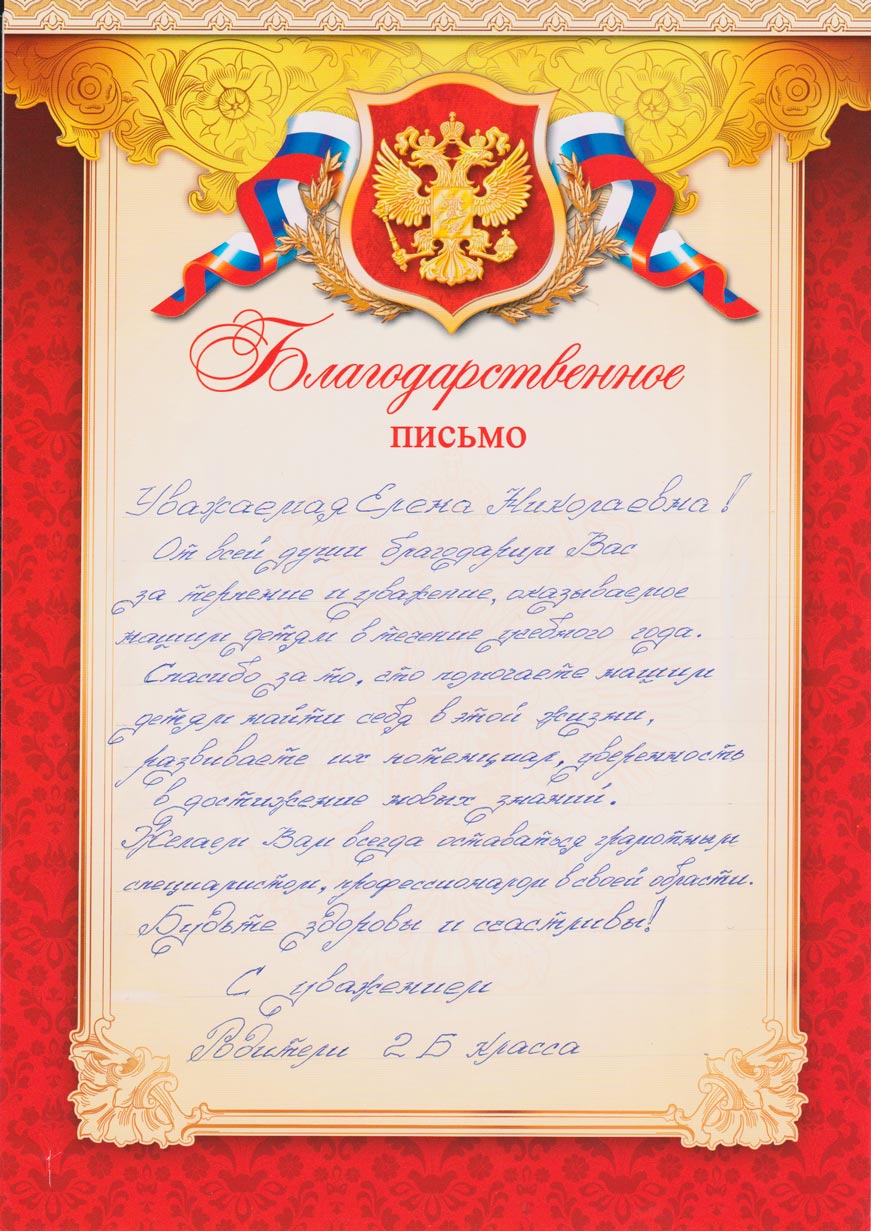 Благодарственное
письмо
Уважаемая Елена Николаевна!
От всей души благодарим Вас
за терпение и уважение, оказываемое
нашим детям в течение учебного года.
Спасибо за то, что помогаете нашим
детям найти себя в этой жизни,
развиваете их потенциал, уверенность
в достижение новых знаний.
Желаем Вам всегда оставаться грамотным
специалистом, профессионалом в своей области.
Будьте здоровы и счастливы!
С уважением
Родители 2 Б класса